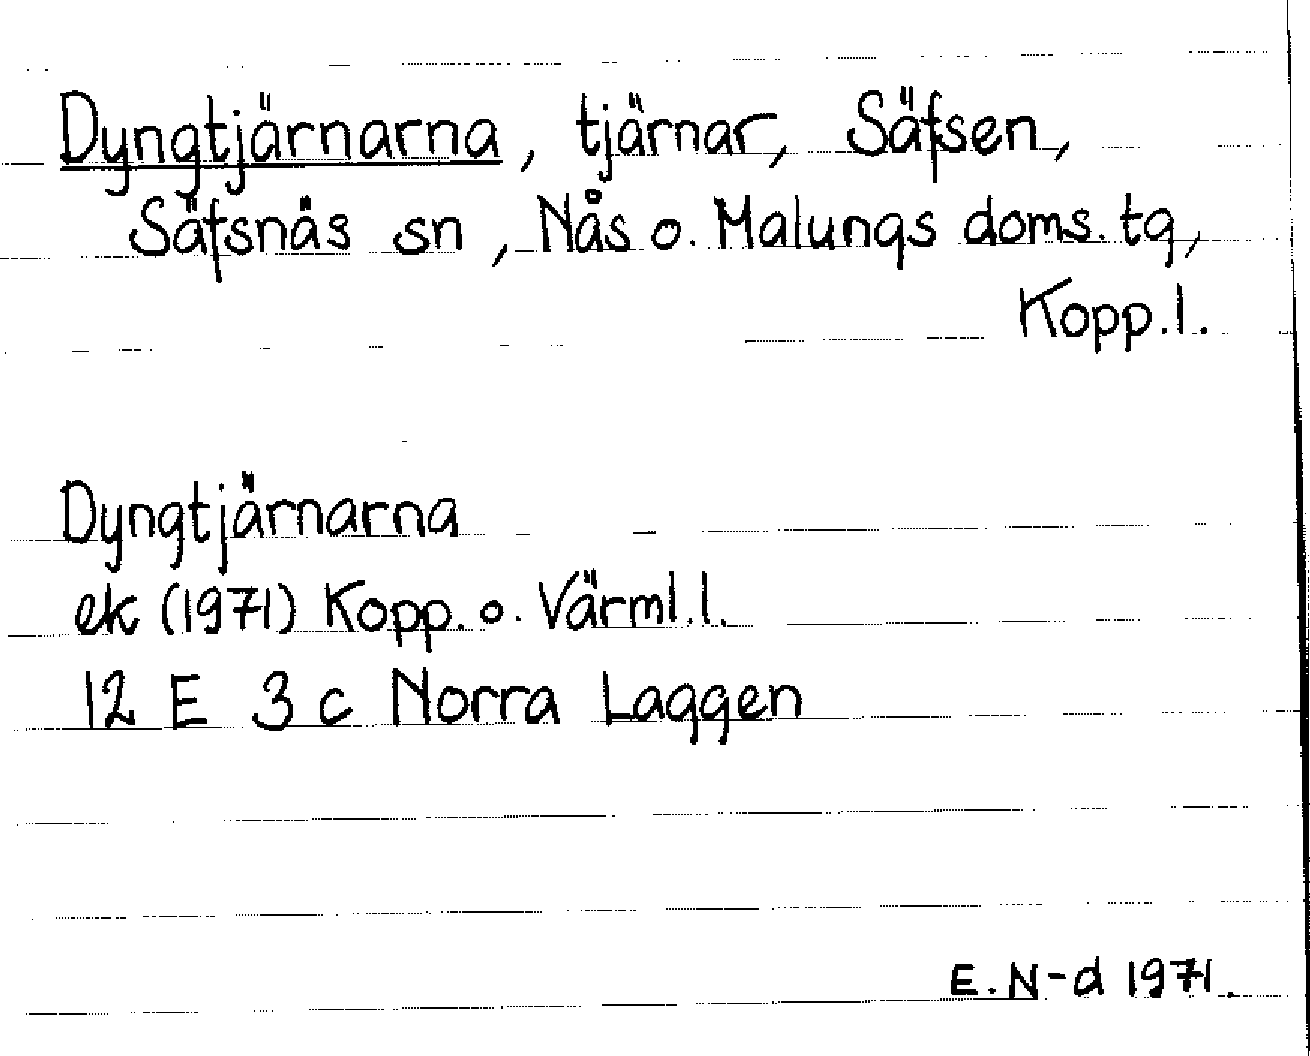 Dyngtjärnarna, tjärnar, Säfsen,
Säfsnäs sn, Nås o. Malungs doms. tg,
Kopp. l.
Dyngtjärnarna
ek (1971) Kopp. o. Värml. l.
12 E 3 c Norra Laggen
E. N-d 1971.